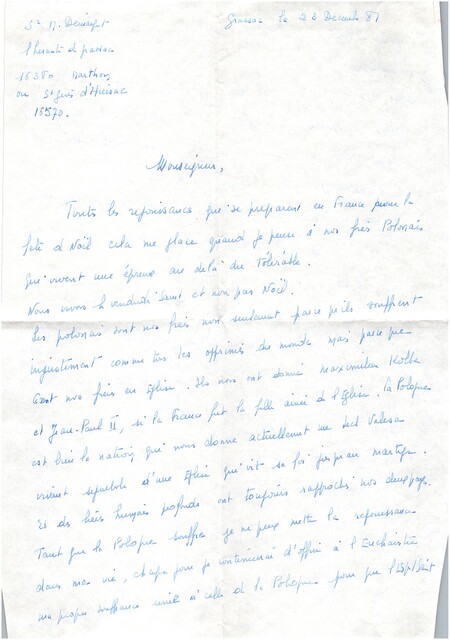 l'Hermitage de
16380 Marthon
ou St d'
16570.
Grassac le 22 Décembre 81
Monseigneur,
Toutes les rejouissances que se preparent en France pour la
fête d Noël cela me glace quand je pense à nos frères Polonais
qui vivent une épreuve au delà du Tolérable.
Nous vivons le vendredi Saint et non pas Noël.
Les polonais sont nos frères non seulement parce qu'ils souffrent
injustement comme tous les opprimés du monde mais parce que
sont nos frères en Eglise. Ils nous ont donné maximilien Kolbe
et Jean-Paul II, si la France fut la fille ainée de l'Eglise. la Pologne
est bien la nation qui nous donne actuellement un Lech Valesa
vivant symbole d'une Eglise qui vit sa foi jusqu'au martyre.
Et des liens humains profonds ont toujours rapproché nos deux pays.
Tant que la Pologne souffre je ne peux mettre la rejouissance
dans ma vie, chaque jour je continuerai d'offrir à l'Eucharistie
ma propre souffrance unie à celle de la Pologne pour que l'Esprit Saint